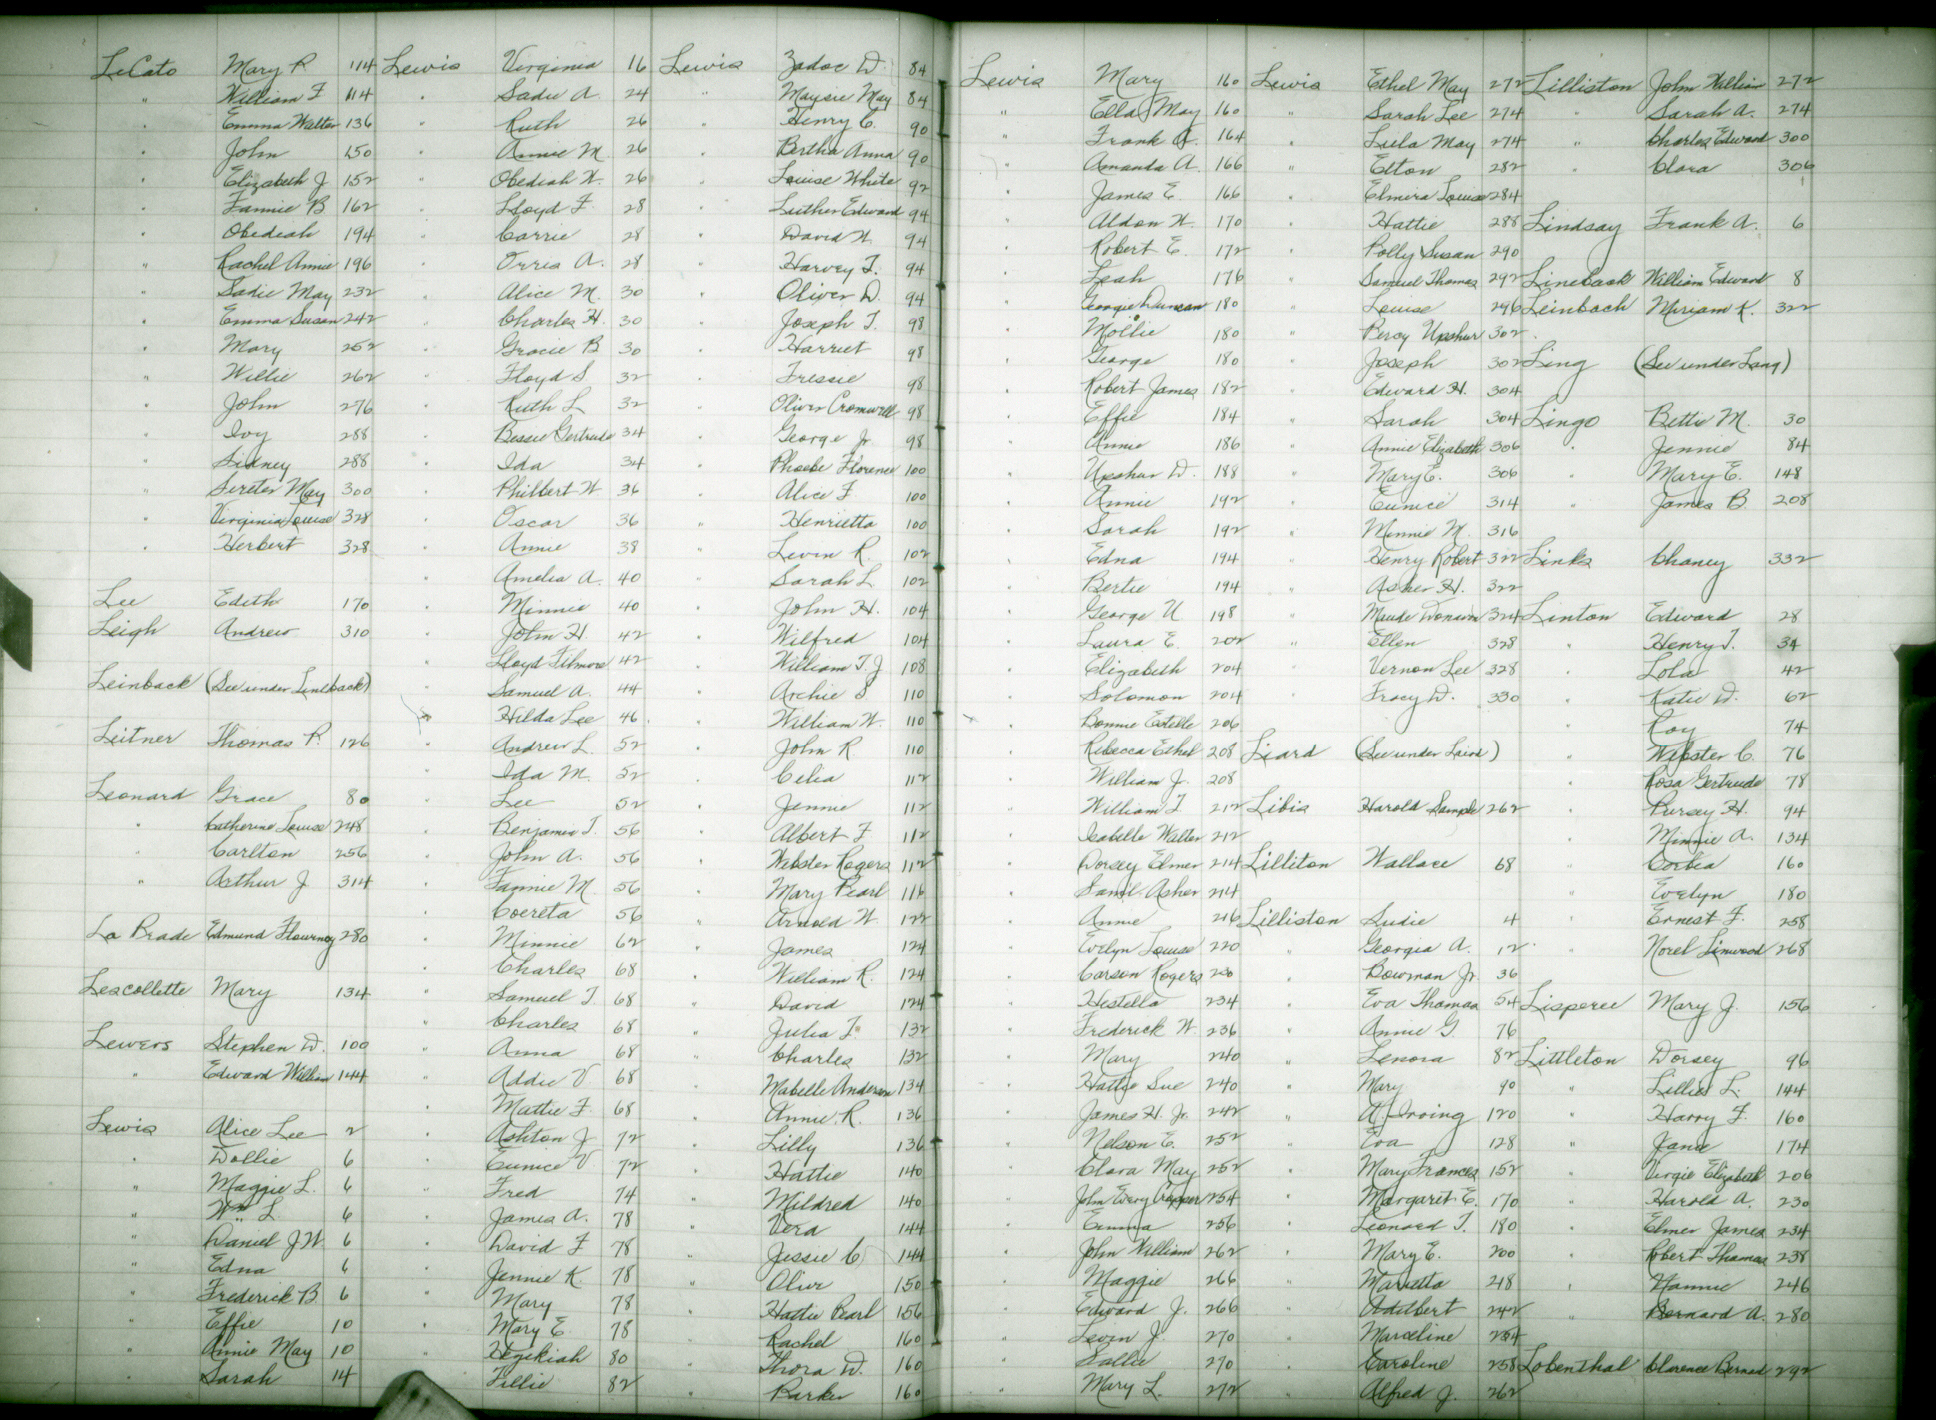 LeCato Mary P. 114
" William F 114
" Emma Walter 136
" John 150
" Elizabeth J 152
" Fannie B 162
" Obediah 194
" Rachel Annie 196
" Sadie May 232
" Emma Susan 242
" Mary 252
" Willie 262
" John 276
" Ivy 288
" Sidney 288
" May 300
" Virginia Louise 328
" Herbert 328
Lee Edith 170
Leigh Andrew 310
Leinback (See under Lineback)
Leitner Thomas P. 126
Leonard Grace 80
" Catherine Louise 248
" Carlton 256
" Arthur J 314
La Brade Edmund Flournoy 280
Lescollette Mary 134
Lewers Stephen D. 100
" Edward William 144
Lewis Alice Lee 2
" Dollie 6
" Maggie L. 6
" Wm L 6
" Daniel J W 6
" Edna 6
" Frederick B 6
" Effie 10
" Annie May 10
" Sarah 14
Lewis Virginia 16
" Sadie A. 24
" Ruth 26
" Annie M. 26
" Obediah W. 26
" Lloyd F. 28
" Carrie 28
" Orris A. 28
" Alice M. 30
" Charles H. 30
" Gracie B 30
" Floyd S 32
" Ruth L 32
" Bessie Gertrude 34
" Ida 34
" Philbert W 36
" Oscar 36
" Annie 38
" Amelia A. 40
" Minnie 40
" John H. 42
" Lloyd Filmore 42
" Samuel A. 44
" Hilda Lee 46
" Andrew L. 52
" Ida M. 52
" Lee 52
" Benjamin T. 56
" John A. 56
" Fannie M. 56
" Coereta 56
" Minnie 62
" Charles 68
" Samuel T 68
" Charles 68
" Anna 68
" Addie V 68
" Mattie F. 68
" Ashton J 72
" Eunice V. 72
" Fred 74
" James A. 78
" David F 78
" Jennie K. 78
" Mary 78
" Mary E. 78
" Hezikiah 80
" Tillie 82
Lewis Zadoc D. 84
" Maysie May 84
" Henry C. 90
" Bertha Anna 90
" Louise White 92
" Luther Edward 94
" David W. 94
" Harvey T. 94
" Oliver D. 94
" Joseph T. 98
" Harriet 98
" Fressie 98
" Oliver Cromwell 98
" George Jr. 98
" Phoebe Florence 100
" Alice F. 100
" Henrietta 100
" Levin R. 102
" Sarah L 102
" John H. 104
" Wilfred 104
" William T. J 108
" Archie S 110
" William W. 110
" John R 110
" Celia 112
" Jennie 112
" Albert F. 112
" Webster Rogers 112
" Mary Pearl 116
" Arnold W. 122
" James 124
" William R. 124
" David 124
" Julia F. 132
" Charles 132
" Mabelle Anderson 134
" Annie R. 136
" Lilly 136
" Hattie 140
" Mildred 140
" Vera 144
" Jessie C 144
" Oliver 150
" Hattie Pearl 156
" Rachel 160
" Thora D. 160
" Parker 160
Lewis Mary 160
" Ella May 160
" Frank 164
" Amanda A. 166
" James E. 166
" Aldon W. 170
" Robert E. 172
" Leah 176
" Georgie Duncan 180
" Mollie 180
" George 180
" Robert James 182
" Effie 184
" Annie 186
" Upshur D. 188
" Annie 192
" Sarah 192
" Edna 194
" Bertie 194
" George U 198
" Laura E. 202
" Elizabeth 204
" Solomon 204
" Bonnie Estelle 206
" Rebecca Ethel 208
" William J. 208
" William T 212
" Isabelle Walter 212
" Dorsey Elmer 214
" Saml. Asher 214
" Annie 216
" Evelyn Louise 220
" Carson Rogers 230
" Hestella 234
" Frederick W. 236
" Mary 240
" Hattie Sue 240
" James H. Jr. 242
" Nelson E. 252
" Clara May 252
" John Every 254
" Emma 256
" John William 262
" Maggie 266
" Edward J. 266
" Levin J. 270
" Sallie 270
" Mary L. 272
Lewis Ethel May 272
" Sarah Lee 274
" Lula May 274
" Elton 282
" Elmira Louise 284
" Hattie 288
" Polly Susan 290
" Samuel Thomas 292
" Louise 296
" Percy Upshur 302
" Joseph 302
" Edward H. 304
" Sarah 304
" Annie Elizabeth 306
" Mary E. 306
" Eunice 314
" Minnie M. 316
" Henry Robert 322
" Asher H. 322
" Maude 324
" Ellen 328
" Vernon Lee 328
" Tracy D. 330
Liard (See under Laird)
Libis Harold Sample 262
Lilliton Wallace 68
Lilliston Sudie 4
" Georgia A. 12
" Bowman Jr 36
" Eva Thomas 54
" Annie G. 76
" Lenora 82
" Mary 90
" A Irving 120
" Eva 128
" Mary Frances 152
" Margaret E. 170
" Leonard T. 180
" Mary E. 200
" Marietta 218
" Adelbert 242
" Marceline 254
" Caroline 258
" Alfred J. 262
Lilliston John William 272
" Sarah A. 274
" Charles Edward 300
" Clara 306
Lindsay Frank A. 6
Lineback William Edward 8
Leinbach Miriam K. 322
Ling (See under Lang)
Lingo Bettie M. 30
" Jennie 84
" Mary E. 148
" James B. 208
Links Chaney 332
Linton Edward 28
" Henry T. 34
" Lola 42
" Katie D. 62
" Roy 74
" Webster C. 76
" Rosa Gertrude 78
" Pursey H. 94
" Minnie A. 134
" Corbia 160
" Evelyn 180
" Ernest F. 258
" Norel Linwood 268
Lisperee Mary J. 156
Littleton Dorsey 96
" Lillie L. 144
" Harry F. 160
" Jane 174
" Virgie Elizabeth 206
" Harold A. 230
" Elmer James 234
" Robert Thomas 238
" Nannie 246
" Bernard A. 280
Lobenthal Clarence Bernard 292